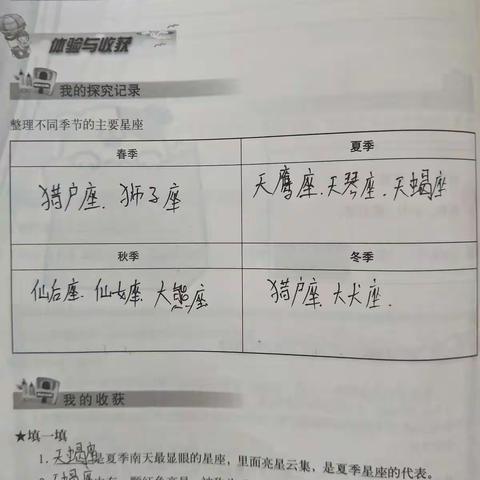 体验与收获
我的探究记录
整理不同季节的主要星座
春季
夏季
猎户座、狮子座
天鹰座、天琴座、天蝎座
秋季
冬季
仙后座、仙女座、大熊座
猎户座、大犬座、
我的收获
★填一填
1. 天蝎座是夏季南天最显眼的星座，里面亮星云集，是夏季星座的代表。